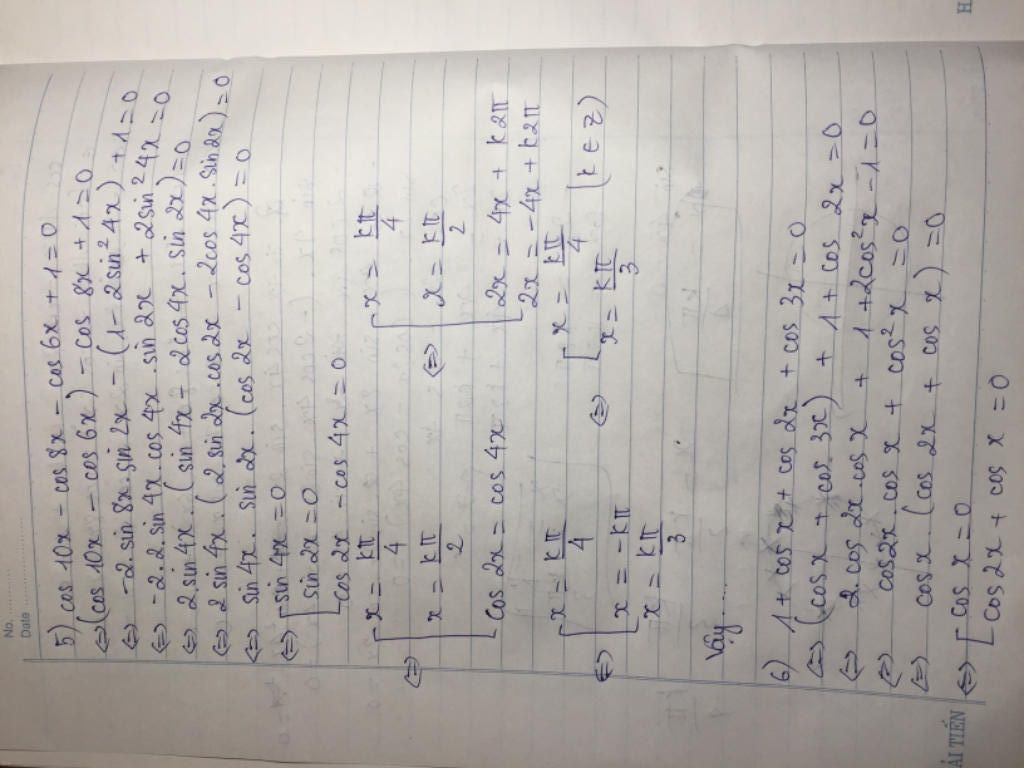 No.
Date
5) cos 10x - cos 8x - cos 6x + 1 = 0
⇔ (cos 10x - cos 6x) - cos 8x + 1 = 0
⇔ -2 sin 8x. sin 2x - (1 - 2 sin² 4x) + 1 = 0
⇔ -2.2. sin 4x. cos 4x. sin 2x + 2 sin² 4x = 0
⇔ 2 sin 4x. (sin 4x - 2 cos 4x. sin 2x) = 0
⇔ 2 sin 4x (2 sin 2x. cos 2x - 2 cos 4x. sin 2x) = 0
⇔ sin 4x. sin 2x. (cos 2x - cos 4x) = 0
⇔ [ sin 4x = 0
sin 2x = 0
cos 2x - cos 4x = 0
⇔ [ x = kπ/4 ⇔ [ x = kπ/4
x = kπ/2 x = kπ/2
cos 2x = cos 4x 2x = 4x + k2π
2x = -4x + k2π
⇔ [ x = kπ/4 ⇔ [ x = kπ/4 (k ∈ Z)
x = -kπ x = kπ/3
x = kπ/3
Vậy .....
6) 1 + cos x + cos 2x + cos 3x = 0
⇔ (cos x + cos 3x) + 1 + cos 2x = 0
⇔ 2. cos 2x. cos x + 1 + 2cos²x - 1 = 0
⇔ cos2x. cos x + cos² x = 0
⇔ cos x. (cos 2x + cos x) = 0
⇔ [ cos x = 0
cos 2x + cos x = 0
ẢI TIẾN
H